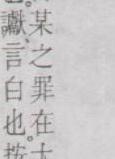 某之罪在
讞言白也